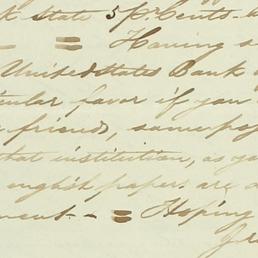 k State 5 pr Cents - a
= Having s
United States Bank
cular favor if you
friends, same pay
that institution, as yo
english papers are a
ment - = Hoping